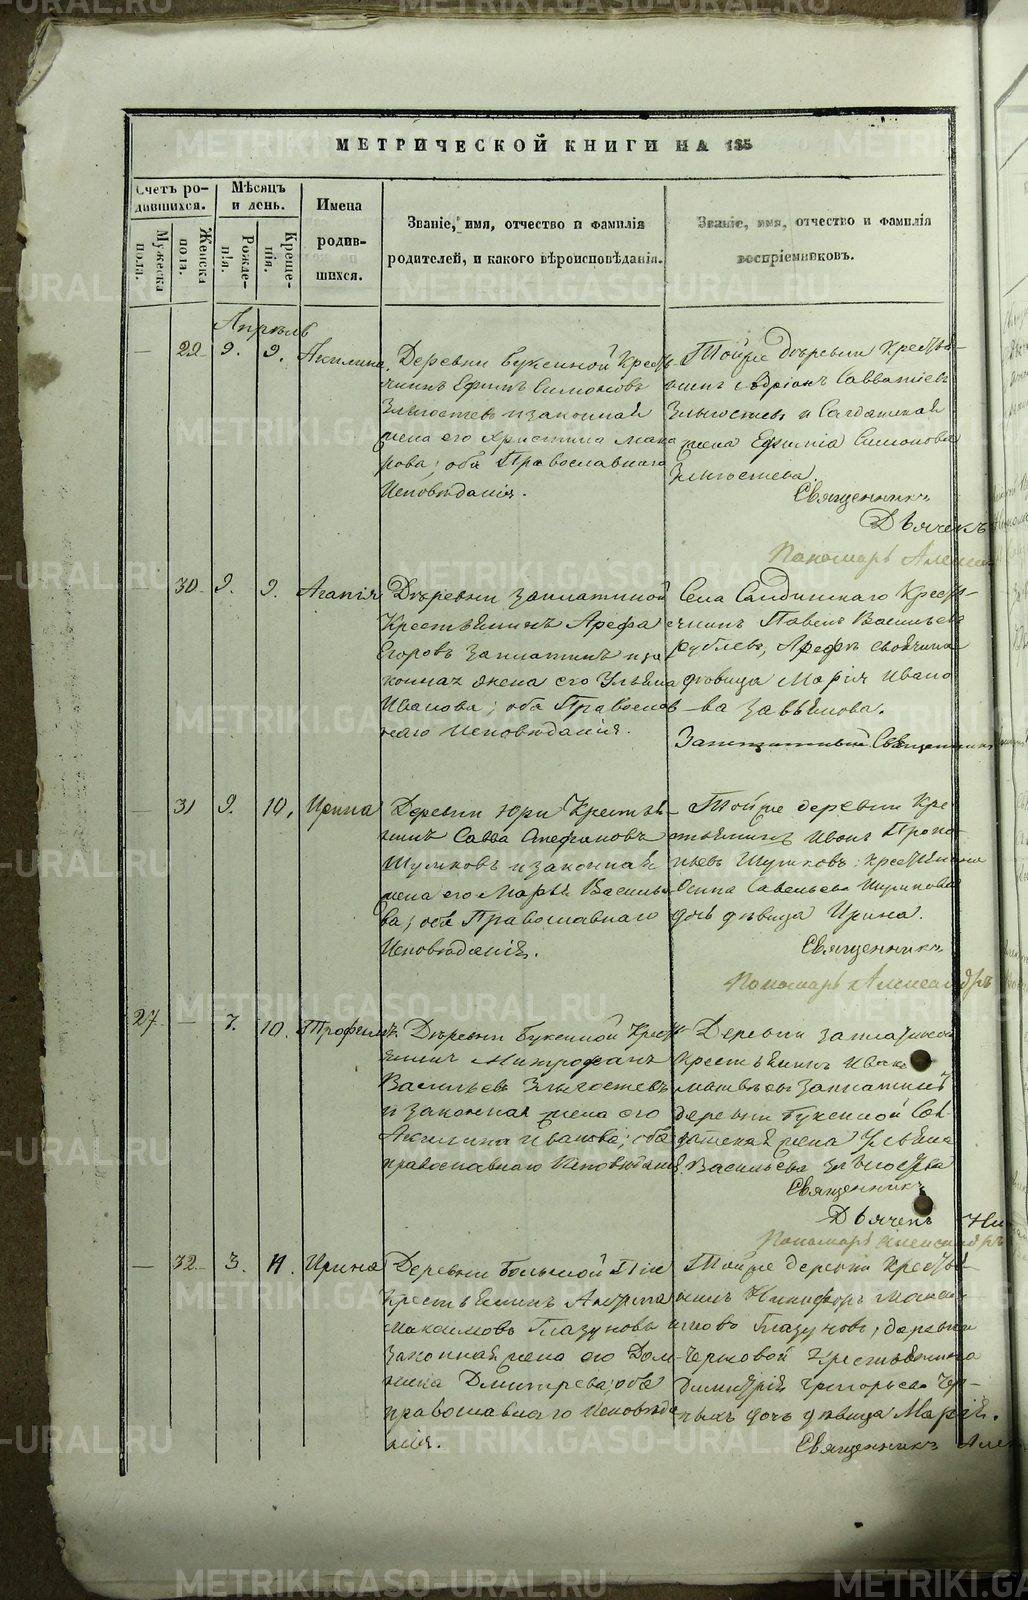 МЕТРИЧЕСКОЙ КНИГИ НА 185
Счетъ ро-
дившихся.
Мѣсяцъ
и день.
Имена
родив-
шихся.
Званіе, имя, отчество и фамилія
родителей, и какого вѣроисповѣданія.
Званіе, имя, отчество и фамилія
воспріемниковъ.
Мужеска
пола.
Женска
пола.
Рожде-
нія.
Креще-
нія.
Апрѣль
— 29 9. 9. Акилина.
Деревни Буксиной Кресть-
янинъ Ефимъ Симоновъ
Злыгостевъ и законная
жена его Христина Мака
рова; оба Православнаго
Исповѣданія.
Тойже дѣревни Кресть-
янинъ Адріанъ Савватіевъ
Злыгостевъ и Салдатская
жена Ефимія Симонова
Злыгостева.
Священникъ
Дьячекъ
Пономарь
— 30 9. 9. Агапія
Дѣревни Заплатиной
Крестьянинъ Арефа
Егоровъ Заплатинъ и за
конная жена его Ульяна
Иванова; оба Православ
наго Исповѣданія.
Села Салдинскаго Кресть-
янинъ Павелъ Васильевъ
Рублевъ, Арефѣ своячина
дѣвица Марія Ивано
-ва Завьялова.
Священникъ
— 31 9. 10. Ирина
Деревни Юри Крестья
нинъ Савва Стефановъ
Шумковъ и законная
жена его Марья Василье
ва; оба Православнаго
Исповѣданія.
— Тойже деревни Кре
стьянинъ Иванъ Проко-
пьевъ Шумковъ; крестьянина
Осипа Савельева Шумкова
дочь дѣвица Ирина.
Священникъ
Пономарь Александръ
27 — 7. 10. Трофимъ.
Дѣревни Буксиной Крест
янинъ Митрофанъ
Васильевъ Злыгостевъ
и законная жена его
Акилина Иванова; оба
православнаго Исповѣданія.
Деревни Заплатиной
Крестьянинъ Иванъ
Матвѣевъ Заплатинъ
деревни Буксиной Сол-
датская жена Ульяна
Васильева Злыгостева
Священникъ
Дьячекъ
Пономарь Александръ
— 32 3. 11. Ирина
Деревни Большой
Крестьянинъ
Максимовъ Глазуновъ и
законная жена его Дом-
ника Дмитрева; оба
православнаго Исповѣда
нія.
Тойже деревни Кресть-
янинъ Никифоръ Макси
мовъ Глазуновъ; деревни
Крестьянина
Димитрія Григорьева Чер-
ныхъ дочь дѣвица Марія.
Священникъ
METRIKI.GASO-URAL.RU